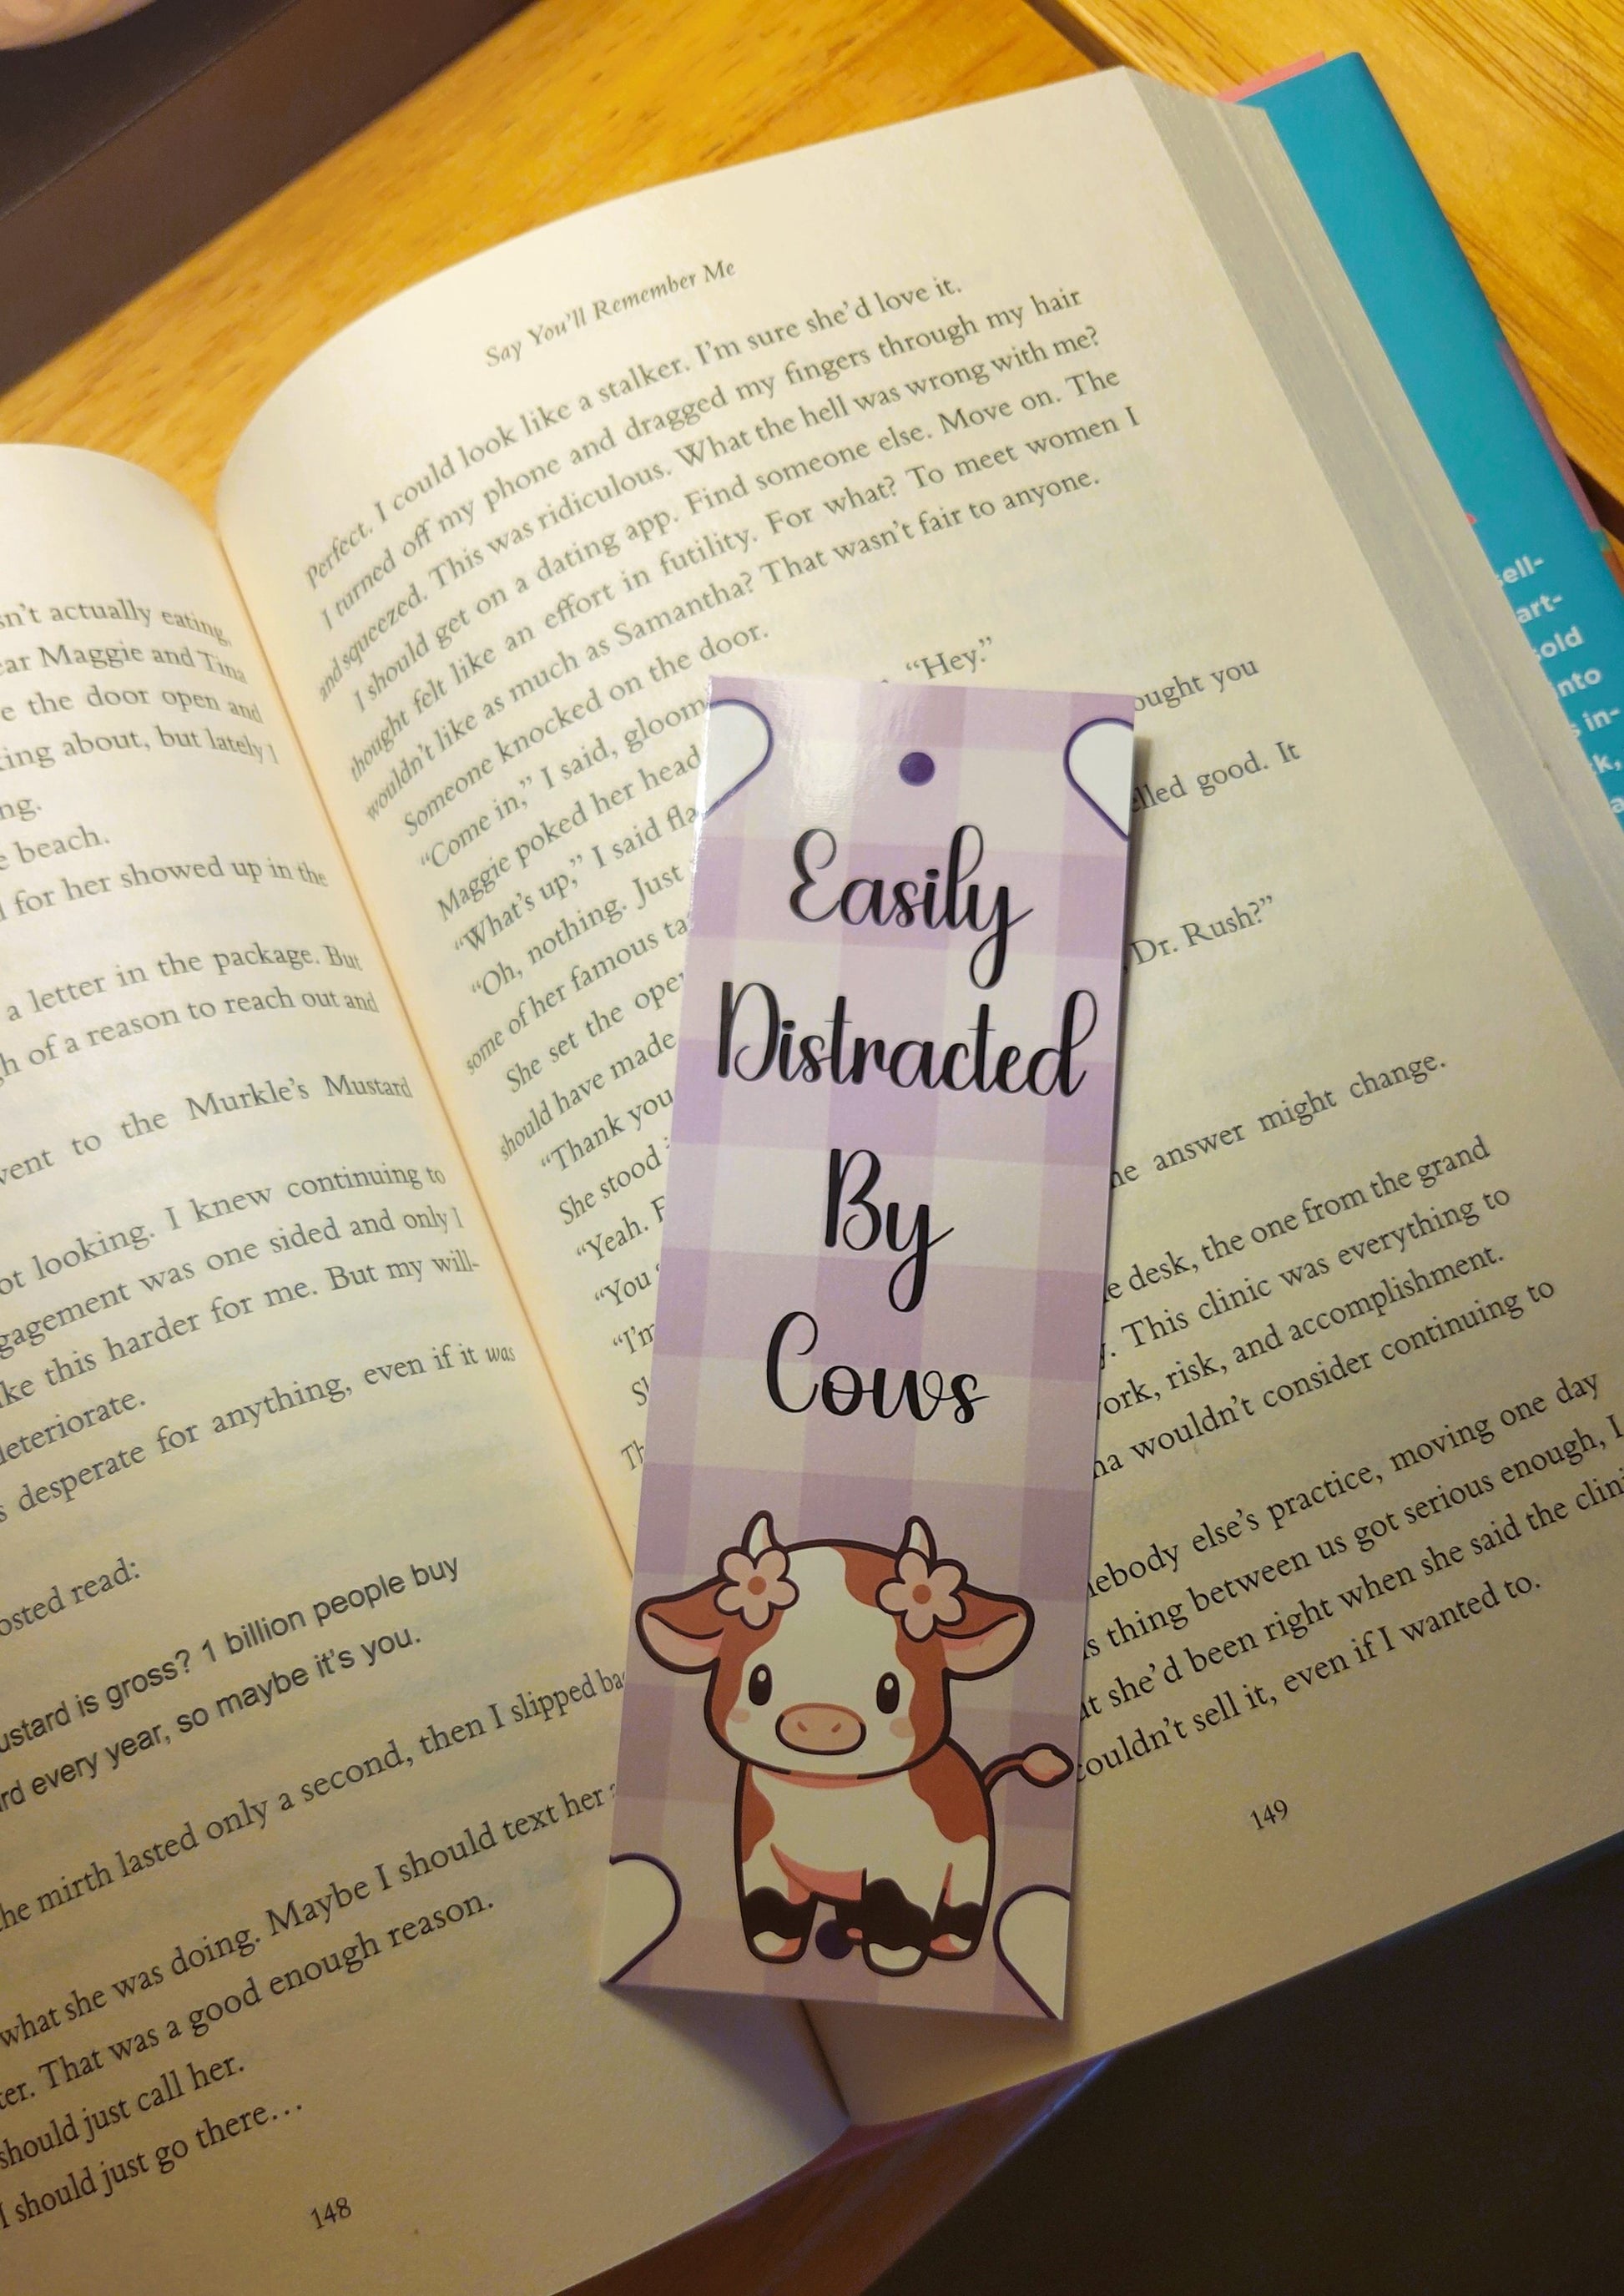 sn't actually eating.
ear Maggie and Tina
e the door open and
king about, but lately I
ng.
e beach.
l for her showed up in the
a letter in the package. But
gh of a reason to reach out and
vent to the Murkle's Mustard
ot looking. I knew continuing to
gagement was one sided and only I
ke this harder for me. But my will-
deteriorate.
s desperate for anything, even if it was
osted read:
ustard is gross? 1 billion people buy
rd every year, so maybe it's you.
he mirth lasted only a second, then I slipped bac
what she was doing. Maybe I should text her a
ter. That was a good enough reason.
should just call her.
I should just go there…
148
Say You'll Remember Me
Perfect. I could look like a stalker. I'm sure she'd love it.
I turned off my phone and dragged my fingers through my hair
and squeezed. This was ridiculous. What the hell was wrong with me?
I should get on a dating app. Find someone else. Move on. The
thought felt like an effort in futility. For what? To meet women I
wouldn't like as much as Samantha? That wasn't fair to anyone.
Someone knocked on the door.
"Come in," I said, gloom
Maggie poked her head "Hey."
"What's up," I said fla
"Oh, nothing. Just ought you
some of her famous ta
She set the ope elled good. It
should have made
"Thank you
She stood Dr. Rush?"
"Yeah. F
"You
"I'm
Sh
Th he answer might change.
e desk, the one from the grand
y. This clinic was everything to
ork, risk, and accomplishment.
na wouldn't consider continuing to
ebody else's practice, moving one day
s thing between us got serious enough, I
at she'd been right when she said the clini
couldn't sell it, even if I wanted to.
149
Easily
Distracted
By
Cows
ell-
art-
old
nto
s in-
k,